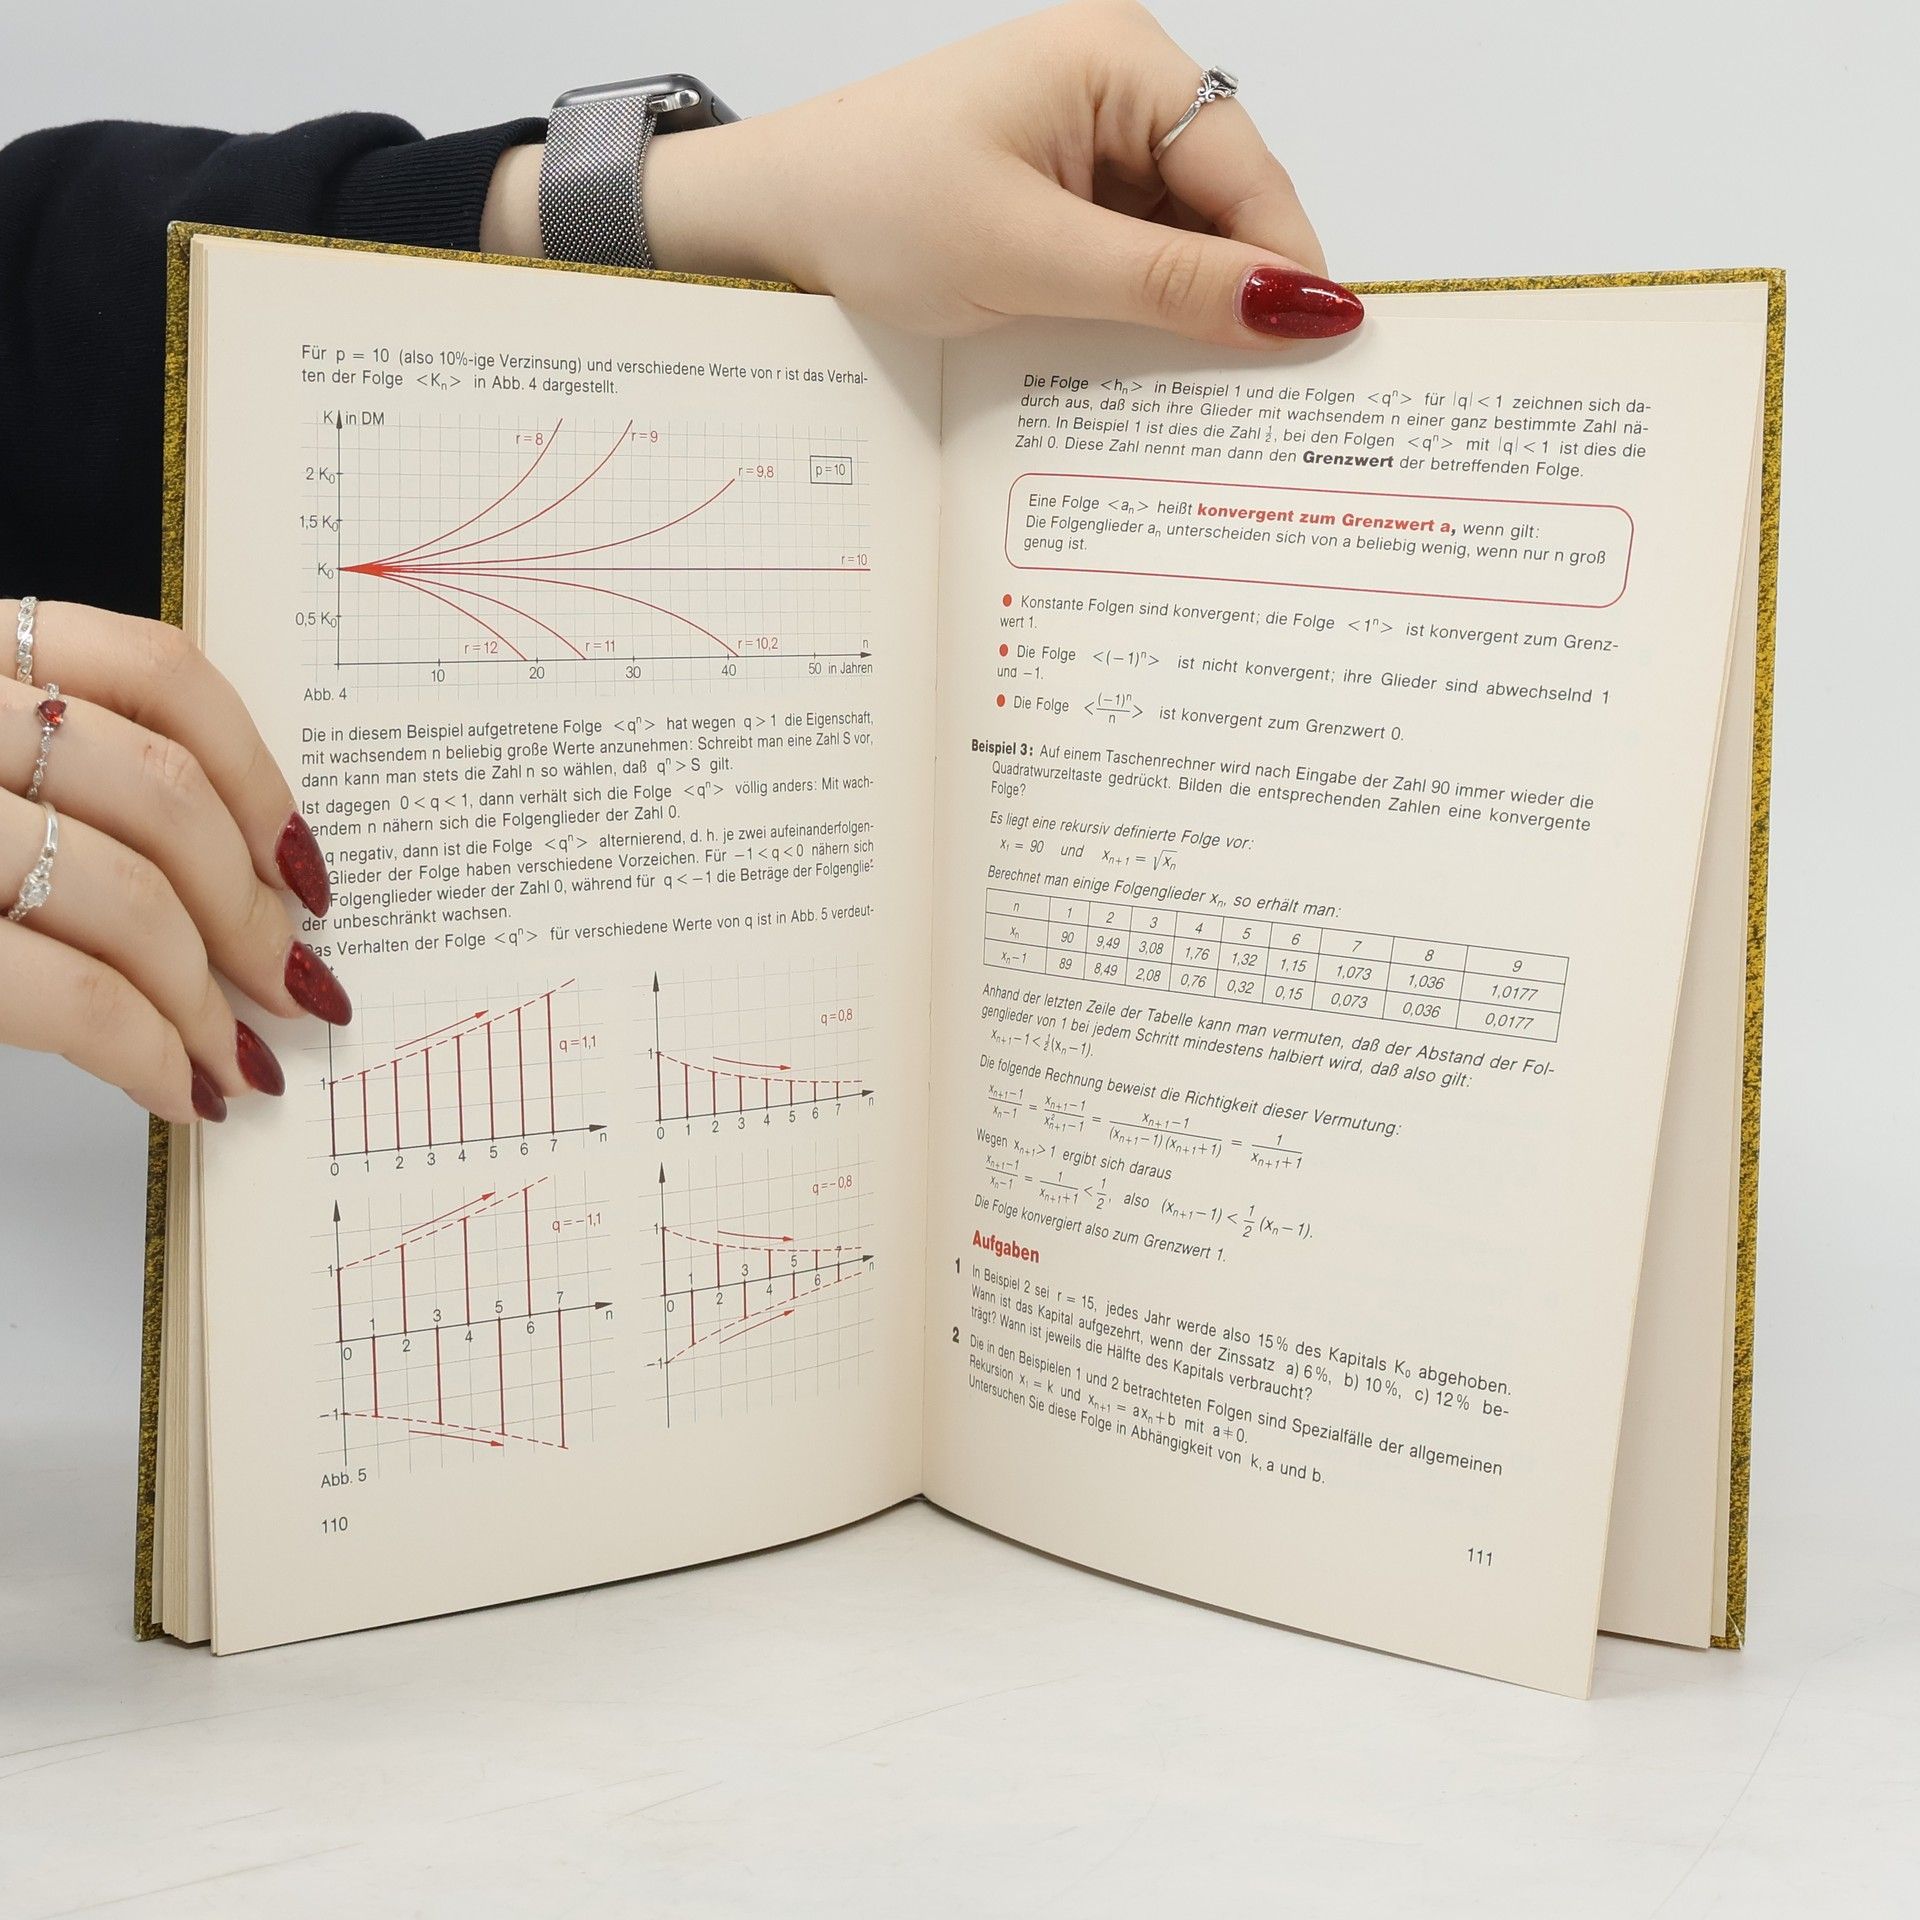 Für p = 10 (also 10%-ige Verzinsung) und verschiedene Werte von r ist das Verhal-
ten der Folge <Kₙ> in Abb. 4 dargestellt.
K in DM
r=8
r=9
2 K₀
r=9,8
p=10
1,5 K₀
r=10
K₀
0,5 K₀
r=12
r=11
r=10,2
n
10 20 30 40 50 in Jahren
Abb. 4
Die in diesem Beispiel aufgetretene Folge <qⁿ> hat wegen q > 1 die Eigenschaft,
mit wachsendem n beliebig große Werte anzunehmen: Schreibt man eine Zahl S vor,
dann kann man stets die Zahl n so wählen, daß qⁿ > S gilt.
Ist dagegen 0 < q < 1, dann verhält sich die Folge <qⁿ> völlig anders: Mit wach-
sendem n nähern sich die Folgenglieder der Zahl 0.
q negativ, dann ist die Folge <qⁿ> alternierend, d. h. je zwei aufeinanderfolgen-
Glieder der Folge haben verschiedene Vorzeichen. Für −1 < q < 0 nähern sich
Folgenglieder wieder der Zahl 0, während für q < −1 die Beträge der Folgenglie-
der unbeschränkt wachsen.
Das Verhalten der Folge <qⁿ> für verschiedene Werte von q ist in Abb. 5 verdeut-
q=1,1
1
0 1 2 3 4 5 6 7 n
q=0,8
1
0 1 2 3 4 5 6 7 n
q=−1,1
1
0 1 2 3 4 5 6 7 n
−1
q=−0,8
1
0 1 2 3 4 5 6 7 n
−1
Abb. 5
110
Die Folge <hₙ> in Beispiel 1 und die Folgen <qⁿ> für |q| < 1 zeichnen sich da-
durch aus, daß sich ihre Glieder mit wachsendem n einer ganz bestimmte Zahl nä-
hern. In Beispiel 1 ist dies die Zahl ½, bei den Folgen <qⁿ> mit |q| < 1 ist dies die
Zahl 0. Diese Zahl nennt man dann den Grenzwert der betreffenden Folge.
Eine Folge <aₙ> heißt konvergent zum Grenzwert a, wenn gilt:
Die Folgenglieder aₙ unterscheiden sich von a beliebig wenig, wenn nur n groß
genug ist.
● Konstante Folgen sind konvergent; die Folge <1ⁿ> ist konvergent zum Grenz-
wert 1.
● Die Folge <(−1)ⁿ> ist nicht konvergent; ihre Glieder sind abwechselnd 1
und −1.
● Die Folge <(−1)ⁿ/n> ist konvergent zum Grenzwert 0.
Beispiel 3: Auf einem Taschenrechner wird nach Eingabe der Zahl 90 immer wieder die
Quadratwurzeltaste gedrückt. Bilden die entsprechenden Zahlen eine konvergente
Folge?
Es liegt eine rekursiv definierte Folge vor:
x₁ = 90 und xₙ₊₁ = √xₙ
Berechnet man einige Folgenglieder xₙ, so erhält man:
n 1 2 3 4 5 6 7 8 9
xₙ 90 9,49 3,08 1,76 1,32 1,15 1,073 1,036 1,0177
xₙ−1 89 8,49 2,08 0,76 0,32 0,15 0,073 0,036 0,0177
Anhand der letzten Zeile der Tabelle kann man vermuten, daß der Abstand der Fol-
genglieder von 1 bei jedem Schritt mindestens halbiert wird, daß also gilt:
xₙ₊₁−1 < ½(xₙ−1).
Die folgende Rechnung beweist die Richtigkeit dieser Vermutung:
(xₙ₊₁−1)/(xₙ−1) = (xₙ₊₁−1)/(x²ₙ₊₁−1) = (xₙ₊₁−1)/((xₙ₊₁−1)(xₙ₊₁+1)) = 1/(xₙ₊₁+1)
Wegen xₙ₊₁ > 1 ergibt sich daraus
(xₙ₊₁−1)/(xₙ−1) = 1/(xₙ₊₁+1) < 1/2, also (xₙ₊₁−1) < 1/2 (xₙ−1).
Die Folge konvergiert also zum Grenzwert 1.
Aufgaben
1 In Beispiel 2 sei r = 15, jedes Jahr werde also 15% des Kapitals K₀ abgehoben.
Wann ist das Kapital aufgezehrt, wenn der Zinssatz a) 6%, b) 10%, c) 12% be-
trägt? Wann ist jeweils die Hälfte des Kapitals verbraucht?
2 Die in den Beispielen 1 und 2 betrachteten Folgen sind Spezialfälle der allgemeinen
Rekursion x₁ = k und xₙ₊₁ = axₙ+b mit a≠0.
Untersuchen Sie diese Folge in Abhängigkeit von k, a und b.
111